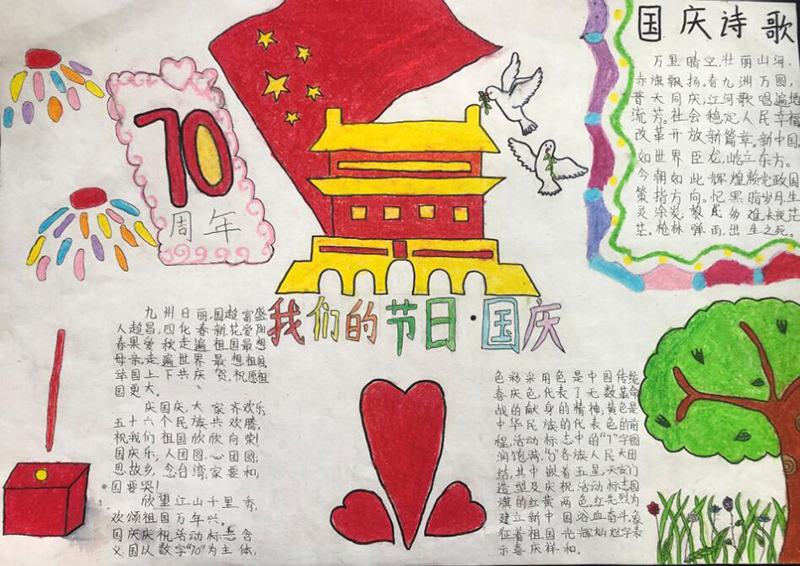 70
周年
国庆诗歌
万里晴空,壮丽山河,
赤旗飘扬,看九洲万图,
普天同庆,江河歌唱遍地
流芳。社会稳定人民幸福
改革开放新篇章。新中国,
如世界臣龙,屹立东方。
今朝如此辉煌,党政国
策指方向。忆黑暗岁月,生
灵涂炭黎民多难,长夜茫
茫。枪林弹雨,出生之死。
我们的节日·国庆
九州日丽,国越富盛
人越昌,四化春新花
春果爱秋走遍祖国最想
母亲,走遍世界最想祖国
举国上下共庆贺,祝愿祖
国更大。
庆国庆,大家齐欢乐
五十六个民族共欢腾,
祝我们祖国欣欣向荣!
国庆乐,人团圆,心团圆;
思故乡,念台湾,家要和,
国要哭!
欣望江山千里秀,
欢颂祖国万年兴。
国庆庆祝活动标志含
义,国以数字"70"为主体,
色彩采用色是中国传统
喜庆色,代表了无数革命
战的献身的精神,黄色是
中华民族的代表色的前
程,活动标志中的"7"字圆
润饱满,"0"各族人民大团
结,其中嵌着五星,天安门
造型及庆祝活动标志国
旗的红黄两色,红先烈为
建立新中国浴血奋斗,象
征着祖国光辉灿烂字表
示喜庆祥和。